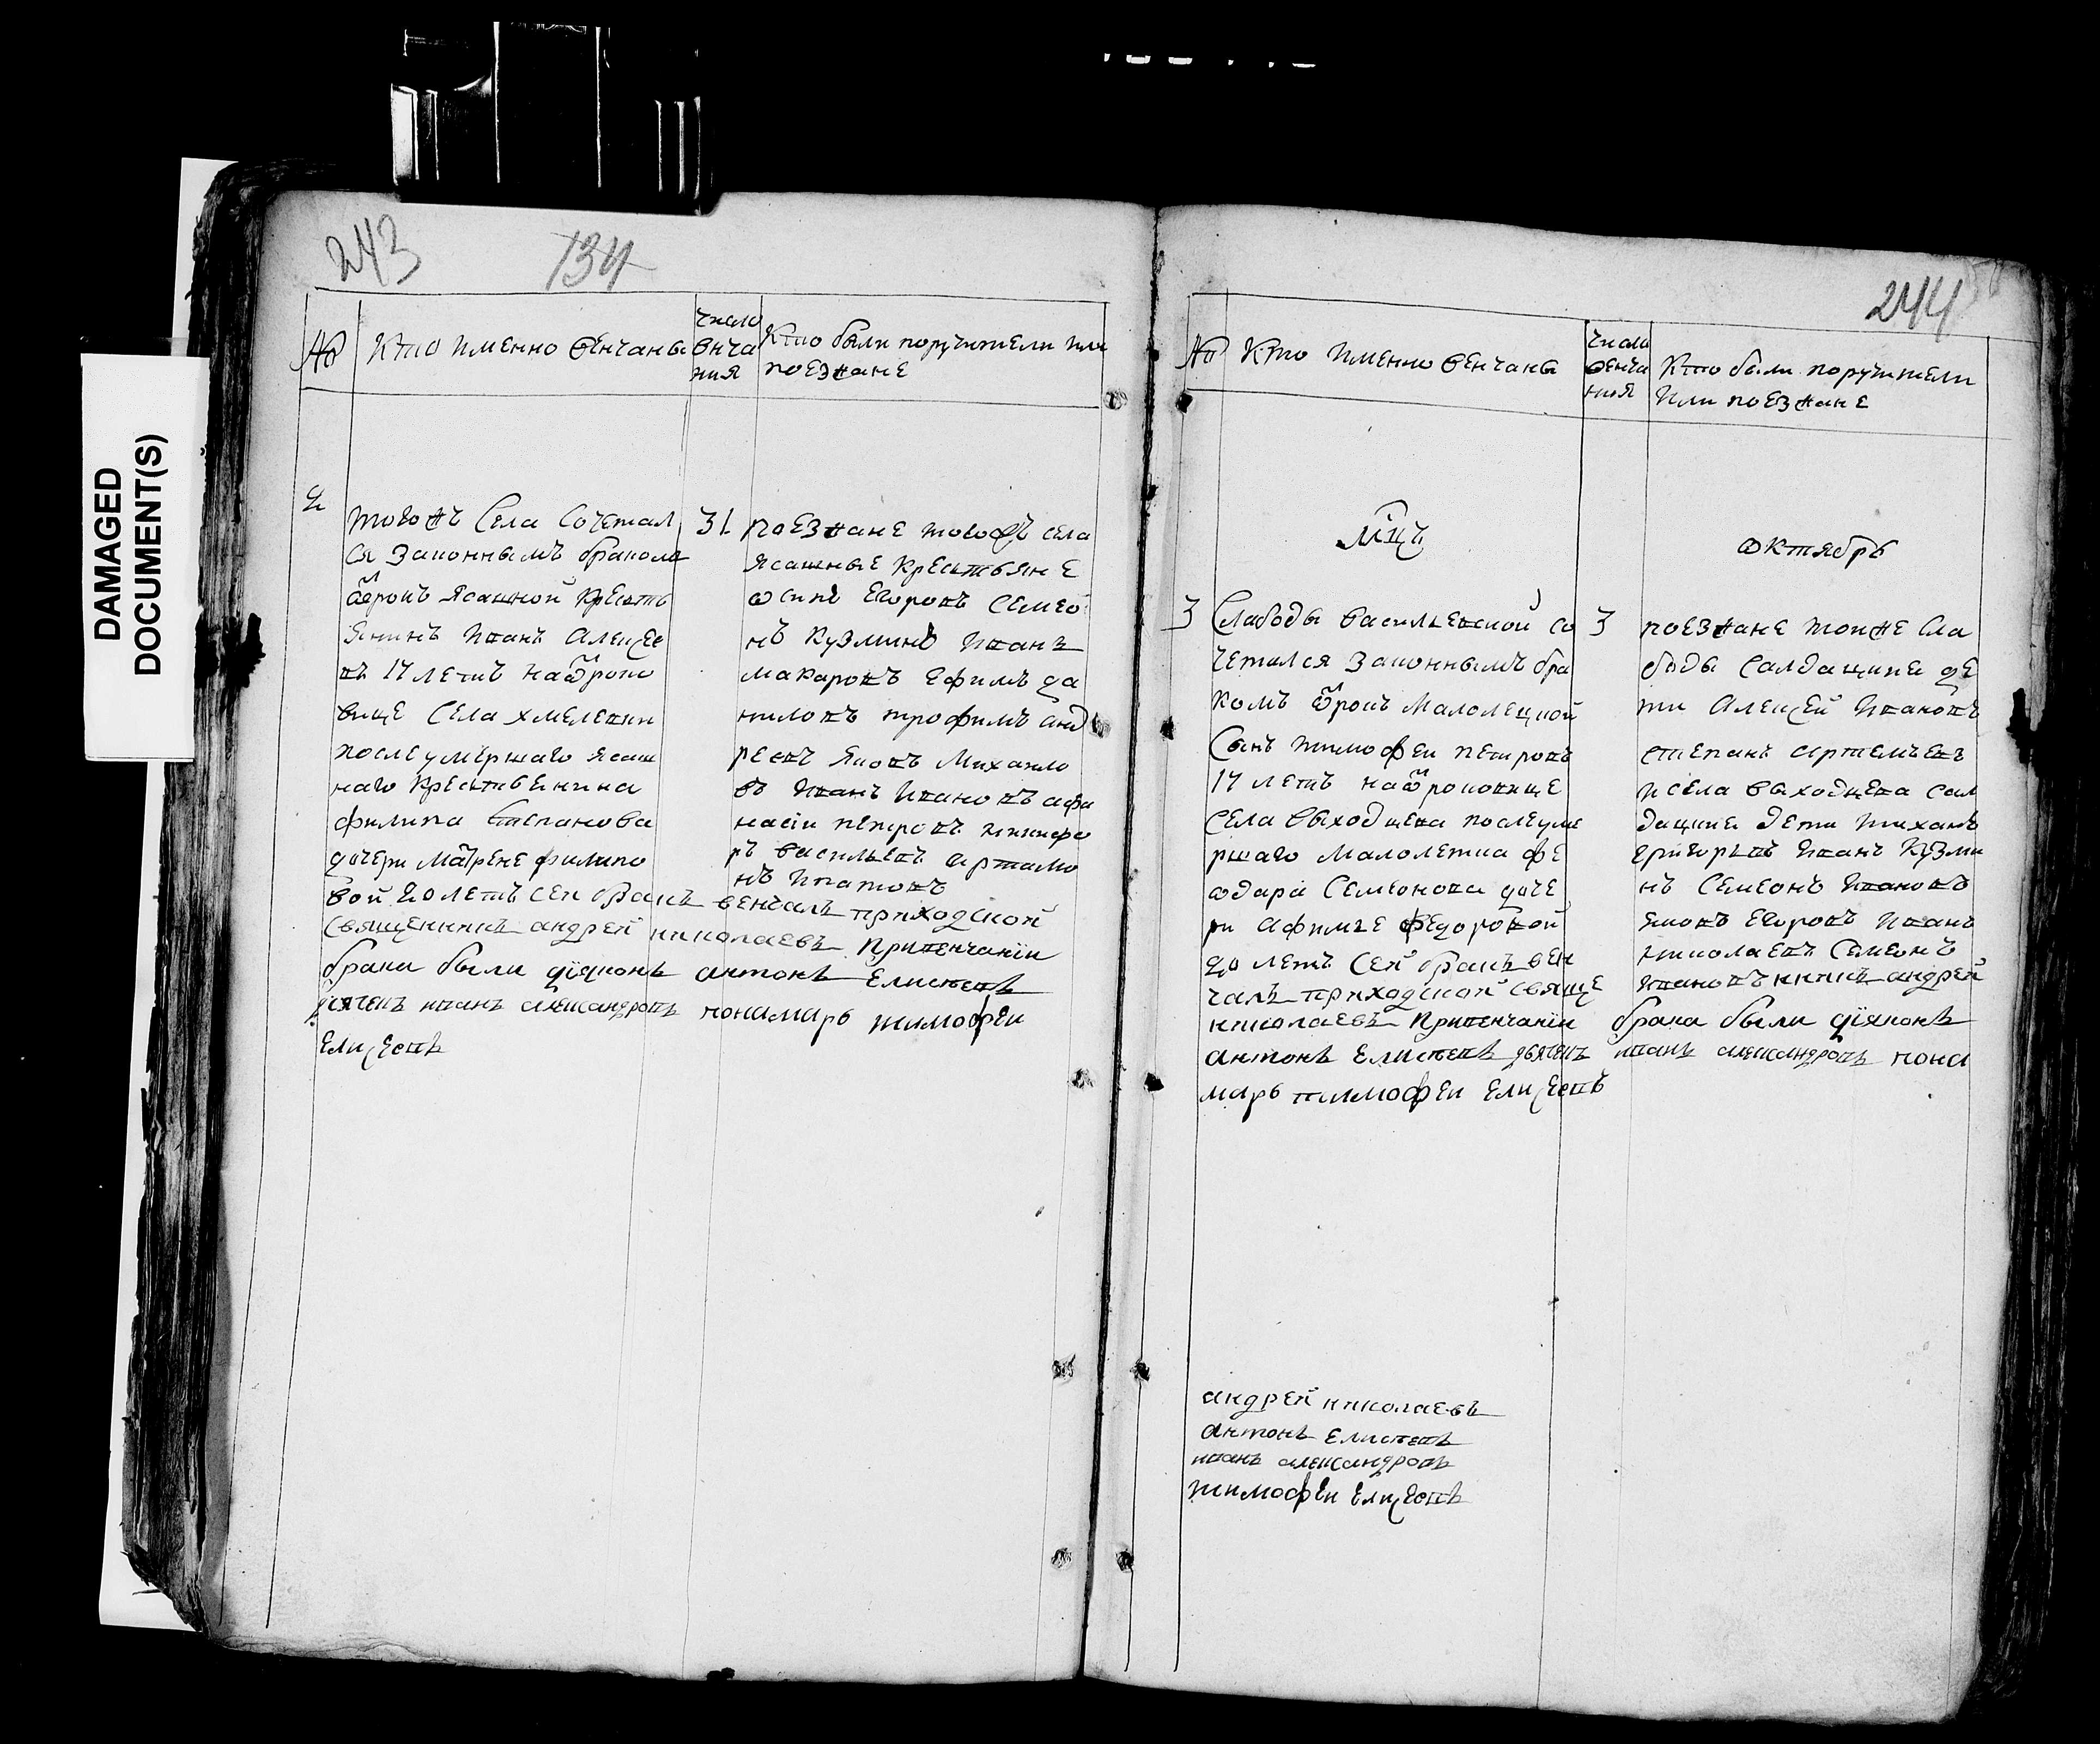 DAMAGED
DOCUMENT(S)
243
134
№
Кто именно венчаны
Число
венча
ния
Кто были поручители или
поезжане
2
тогожъ Села Сочетал
ся Законнымъ бракомъ
отрокъ Ясашной Кресть
янинъ Иванъ Алексее
въ 17 летъ наотроко
вице Села хмелевки
после умершаго ясаш
наго Крестьенина
филипа Степанова
дочери матрене филипо
вой 20 летъ сей бракъ венчалъ приходской
священникъ андрей николаевъ Привенчаніи
брака были діяконъ антонъ Елисеевъ
дьячекъ иванъ александровъ понамарь тимофеи
Елисеевъ
31
поезжане тогожъ села
Ясашные Крестьяне
осипъ Егоровъ Семео
нъ Кузминъ Иванъ
макаровъ Ефимъ да
ниловъ трофимъ анд
реевъ Яковъ Михаило
въ Иванъ Ивановъ афа
насіи петровъ никифо
ръ васильевъ артамо
нъ Игнатовъ
244
№
Кто именно венчаны
Число
венча
ния
Кто были поручители
или поезжане
Мцъ
октябрь
3
Слабоды васильевской со
четался Законнымъ бра
комъ отрокъ Малолецкой
Сынъ тимофеи петровъ
17 летъ наотроковице
Села выходцева после уме
ршаго Малолетка фе
одара Семеонова доче
ри Афимье федоровой
20 летъ Сей бракъ вен
чалъ приходской свяще
никъ андрей
николаевъ Привенчаніи брака были діяконъ
антонъ Елисеевъ дьячекъ иванъ александровъ пона
марь тимофеи Елисеевъ
3
поезжане тойже сла
боды Салдацкие де
ти Алексей Ивановъ
степанъ артемьевъ
и села выходцева сал
дацкие дети тиханъ
григорьевъ Иванъ Кузми
нъ Семеонъ Ивановъ
яковъ Егоровъ Иванъ
николаевъ Семеонъ
Ивановъ
андрей николаевъ
антонъ Елисеевъ
иванъ александровъ
тимофеи Елисеевъ